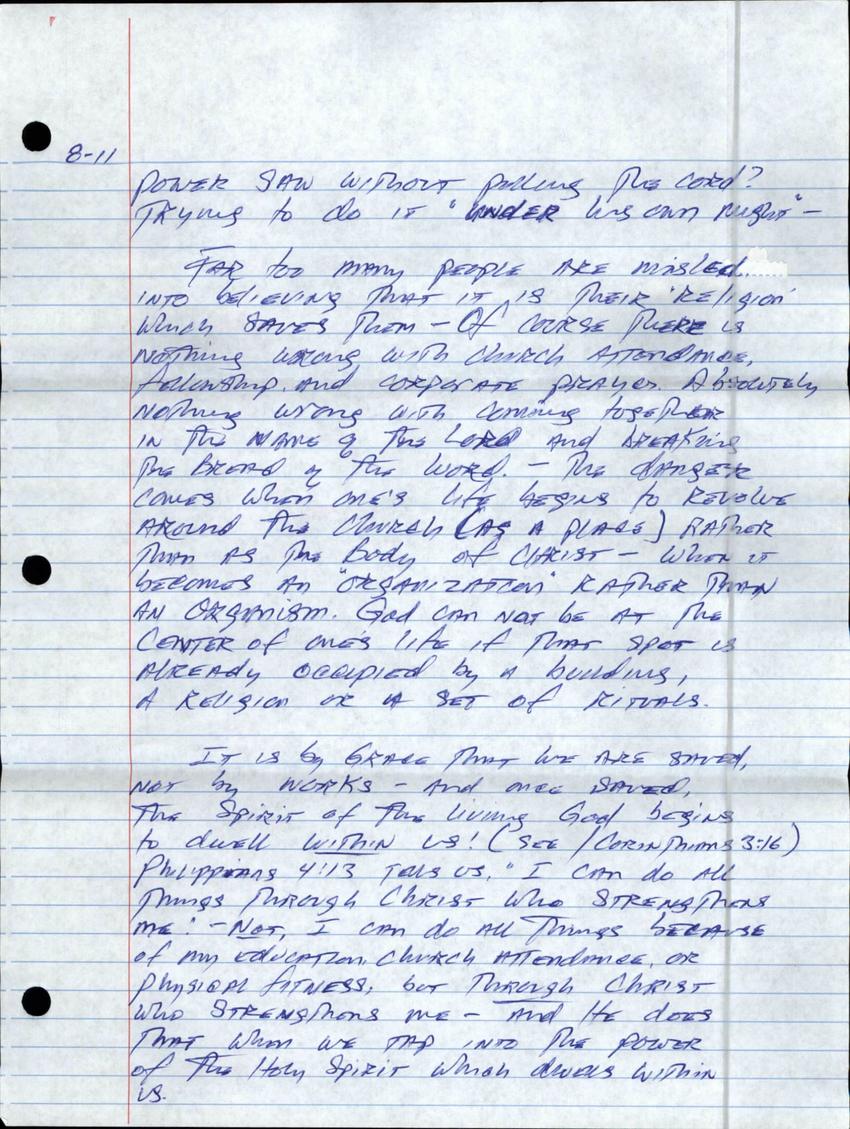 8-11
POWER SAW WITHOUT pulling The cord?
TRYing to do IT "UNDER his own might" -
FAR too many people ARE misled
INTO believing That IT IS THEIR 'RELIGION'
Which SAVES Them - Of COURSE THERE is
NOThing wrong with Church ATTENDANCE,
fellowship, And CORPORATE prayer. Absolutely
NOThing wrong with coming together
in the NAME of The LORD and bREAKing
The BREAD of the WORD. - The dANGER
comes when one's life begins to REVOLVE
AROUND The Church (AS A plACE) RATHER
ThAN AS The Body of CHRIST - When it
becomes AN "ORGANIZATION" RATHER ThAN
AN ORgANISM. God CAN NOT be AT The
CENTER of one's life if That spot is
AlREADY occupied by A building,
A Religion OR A SET of RITUALS.
IT IS by GRACE That WE ARE SAVED,
NOT by WORKS - And once SAVED,
The SpiRIT of The living God begins
to dwell WITHIN us! (SEE I CORINThiANS 3:16)
Philippians 4:13 Tells us, "I CAN do All
Things Through CHRIST Who STRENgThens
me! - NOT, I CAN do All Things becAUSE
of my education, Church ATTENDANCE, OR
physical fiTNESS, but Through CHRIST
who STRENgThens me - And HE does
ThAT when we TAP INTO The power
of The Holy SpiRIT which dwells within
us.